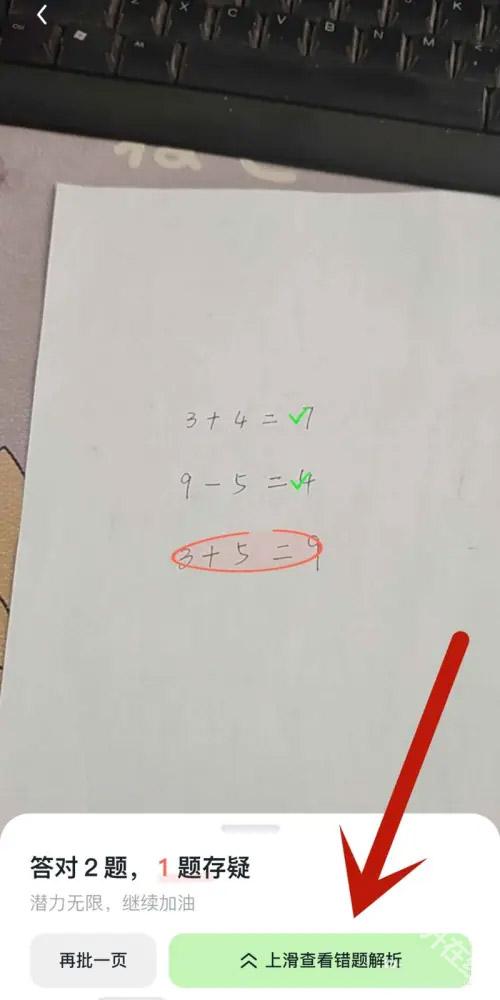 X C V B N M K
3+4=7
9-5=4
3+5=9
答对2题，1题存疑
潜力无限，继续加油
再批一页
上滑查看错题解析